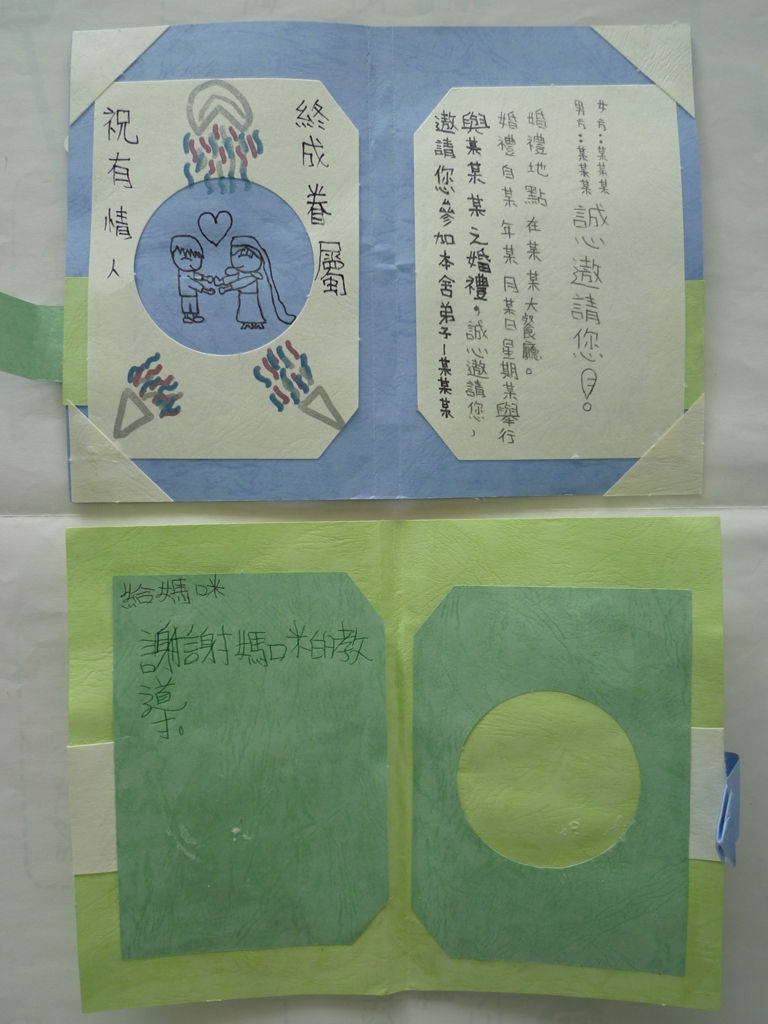 祝有情人
終成眷屬
邀請您參加本舍弟子－某某某
與某某某之婚禮。誠心邀請您，
婚禮自某年某月某日星期某舉行
婚禮地點在某某大餐廳。
男方：某某某
女方：某某某
誠心邀請您！
給媽咪
謝謝媽咪的教
導。